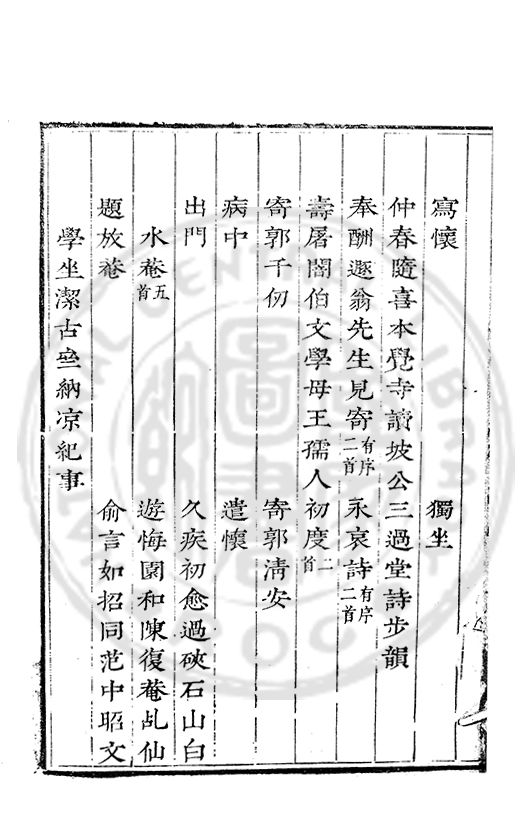 寫懷 獨坐
仲春隨喜本覺寺讀坡公三過堂詩步韻
奉酬遯翁先生見寄二首有序 永哀詩二首有序
壽屠闇伯文學母王孺人初度二首
寄郭千仞 寄郭清安
病中 遣懷
出門 久疾初愈過硤石山白
水菴五首 遊悔園和陳復菴乩仙
題放菴 俞言如招同范中昭文
學坐潔古亝納凉紀事